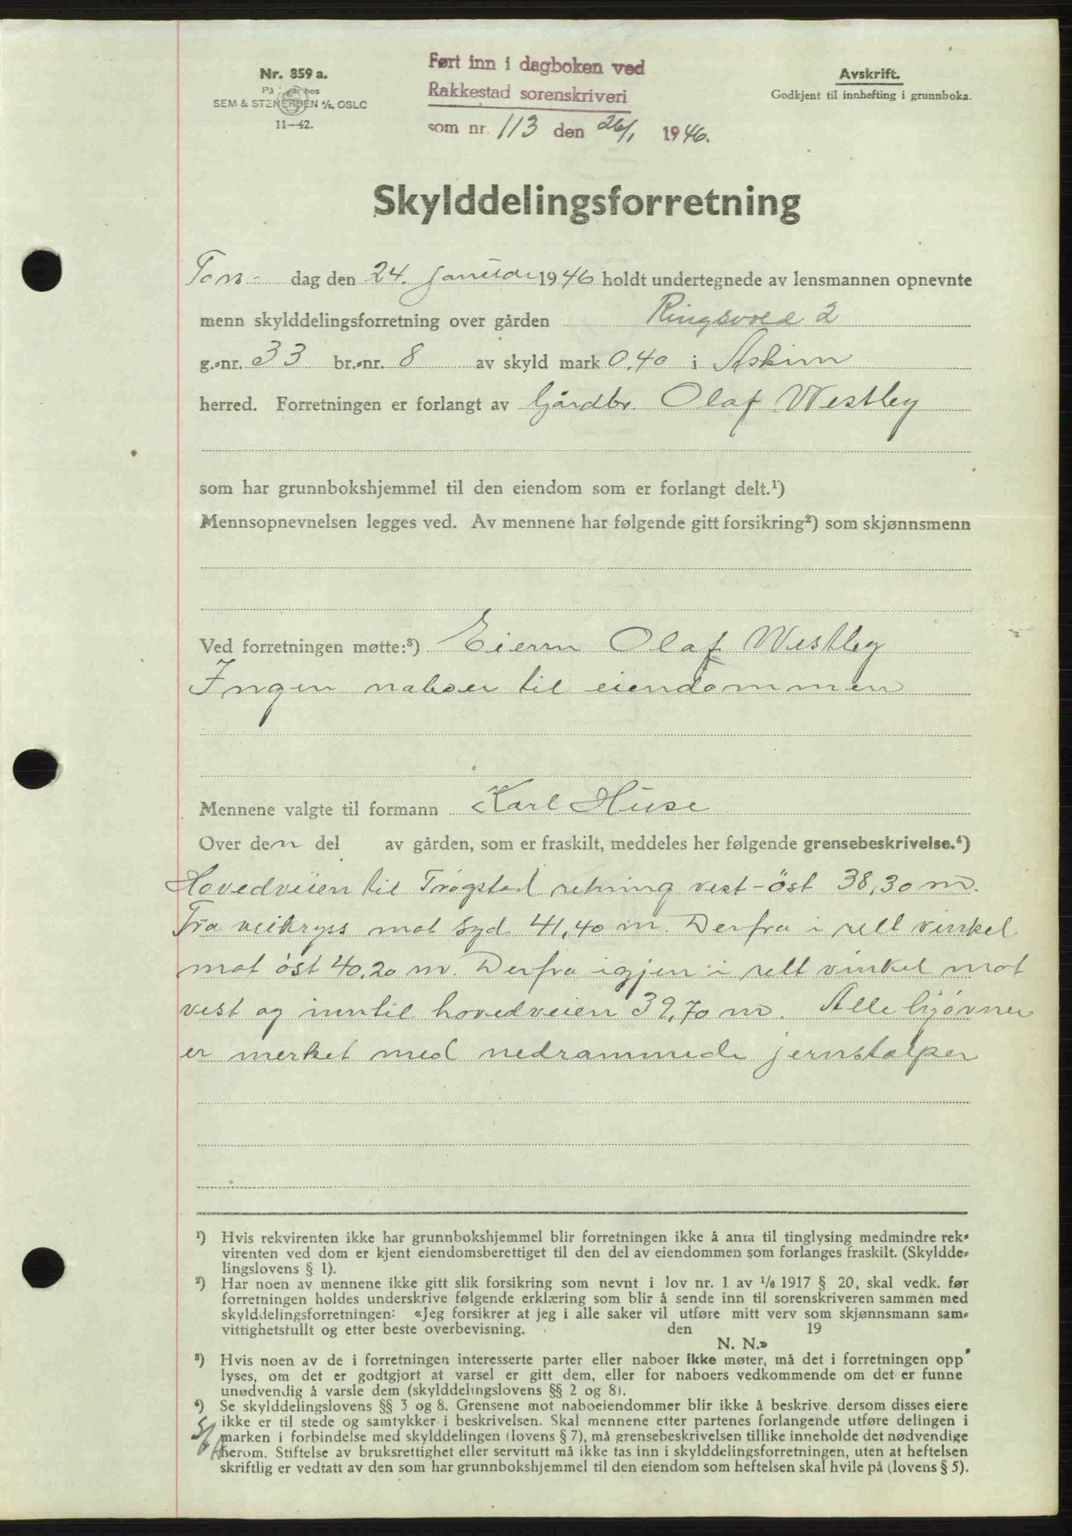 Nr. 859 a.
På lager hos
SEM & STENERSEN A/S, OSLO
11—42.
Ført inn i dagboken ved
Rakkestad sorenskriveri
som nr. 113 den 26/1 1946.
Avskrift.
Godkjent til innhefting i grunnboka.
Skylddelingsforretning
Tors- dag den 24. januar 1946 holdt undertegnede av lensmannen opnevnte
menn skylddelingsforretning over gården Ringsvold 2
g.-nr. 33 br.-nr. 8 av skyld mark 0,40 i Askim
herred. Forretningen er forlangt av Gårdbr. Olaf Westley
som har grunnbokshjemmel til den eiendom som er forlangt delt.¹)
Mennsopnevnelsen legges ved. Av mennene har følgende gitt forsikring²) som skjønnsmenn
Ved forretningen møtte:³) Eieren Olaf Westley
Ingen naboer til eiendommen
Mennene valgte til formann Karl Huse
Over den del av gården, som er fraskilt, meddeles her følgende grensebeskrivelse.⁴)
Hovedveien til Trøgstad retning vest-öst 38,30 m.
Fra veikryss mot syd 41,40 m. Derfra i rett vinkel
mot öst 40,20 m. Derfra igjen i rett vinkel mot
vest og inntil hovedveien 39,70 m. Alle hjövner
er merket med nedrammede jernstolper
¹) Hvis rekvirenten ikke har grunnbokshjemmel blir forretningen ikke å anta til tinglysing medmindre rek-
virenten ved dom er kjent eiendomsberettiget til den del av eiendommen som forlanges fraskilt. (Skyldde-
lingslovens § 1).
²) Har noen av mennene ikke gitt slik forsikring som nevnt i lov nr. 1 av 1/8 1917 § 20, skal vedk. før
forretningen holdes underskrive følgende erklæring som blir å sende inn til sorenskriveren sammen med
skylddelingsforretningen: «Jeg forsikrer at jeg i alle saker vil utføre mitt verv som skjønnsmann sam-
vittighetsfullt og etter beste overbevisning. den 19
N. N.»
³) Hvis noen av de i forretningen interesserte parter eller naboer ikke møter, må det i forretningen opp
lyses, om det er godtgjort at varsel er gitt dem, eller for naboers vedkommende om det er funne
unødvendig å varsle dem (skylddelingslovens §§ 2 og 8).
⁴) Se skylddelingslovens §§ 3 og 8. Grensene mot naboeiendommer blir ikke å beskrive, dersom disses eiere
ikke er til stede og samtykker i beskrivelsen. Skal mennene etter partenes forlangende utføre delingen i
marken i forbindelse med skylddelingen (lovens § 7), må grensebeskrivelsen tillike inneholde det nødvendige
herom. Stiftelse av bruksrettighet eller servitutt må ikke tas inn i skylddelingsforretningen, uten at heftelsen
skriftlig er vedtatt av den som har grunnbokshjemmel til den eiendom som heftelsen skal hvile på (lovens § 5).